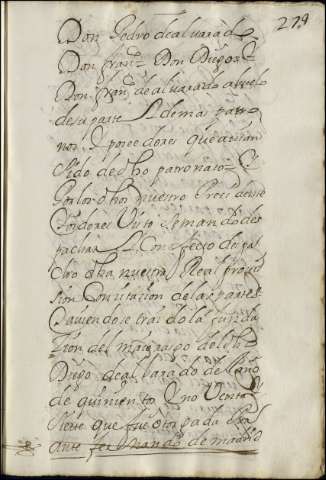 279
Don Pedro de alvarado
Don fran.co Don Diego y
Don fran.co de alvarado abuelo
de esta parte y demas patro
nos y poseedores que avian
sido de dho patronato
Por los dhos nuestro Presidente
oydores Visto se mando des
pachar y Con efecto des pa
cho dha nuestra Real provi
sion Con citacion de las partes
y aviendose traido la funda
zion del maiorazgo del dho
Diego de alvarado de el año
de quinientos y noventa y
siete que fue otorgada
ante fernando de madrid